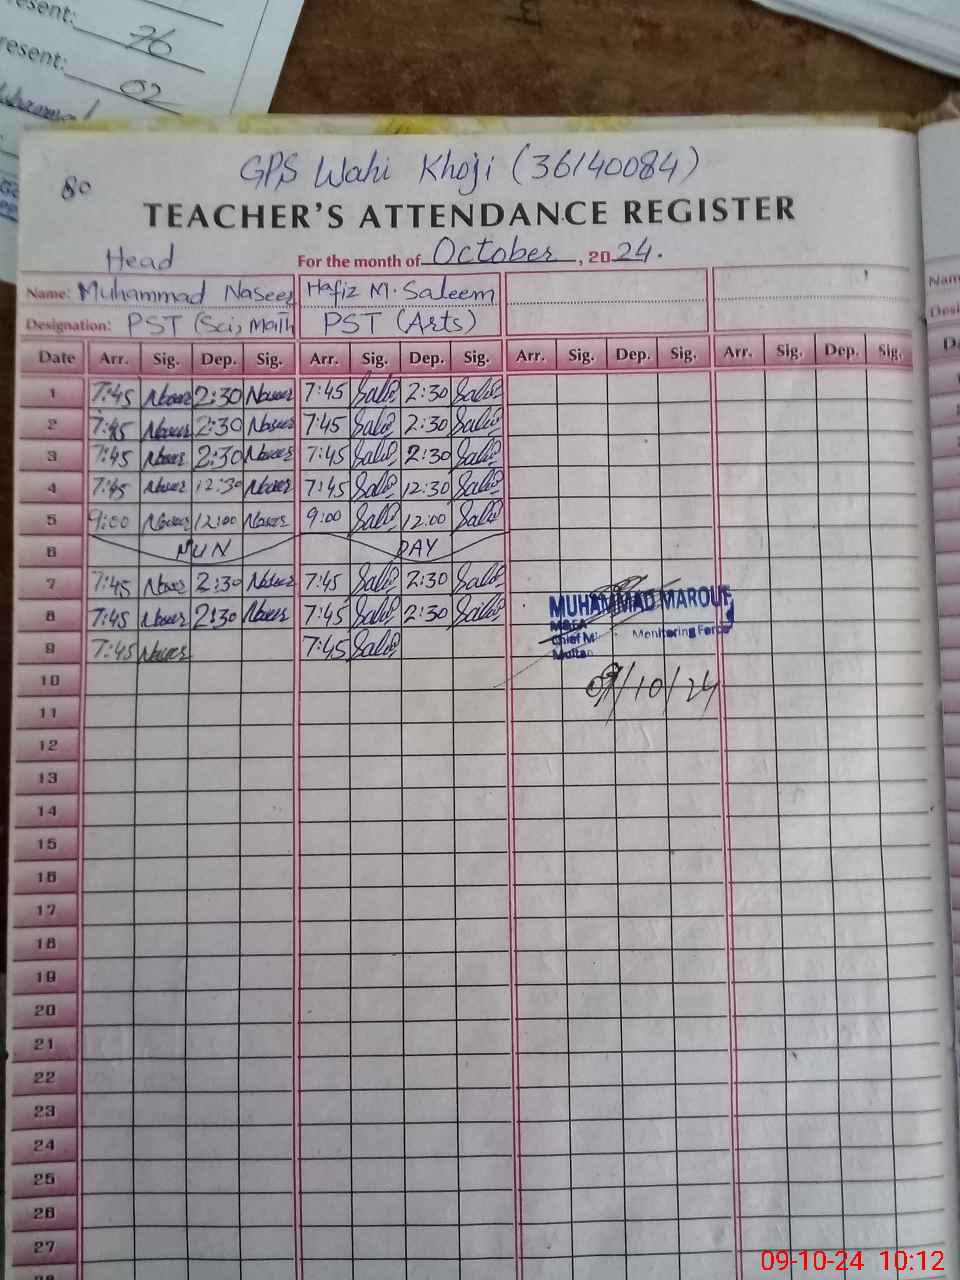 resent:
76
resent:
02
80
GPS Wahi Khoji (36140084)
TEACHER'S ATTENDANCE REGISTER
Head
For the month of October, 2024.
Name: Muhammad Naseer Hafiz M. Saleem
Designation: PST (Sci, Math PST (Arts)
Date Arr. Sig. Dep. Sig. Arr. Sig. Dep. Sig. Arr. Sig. Dep. Sig. Arr. Sig. Dep. Sig.
1 7:45 Naseer 2:30 Naseer 7:45 2:30
2 7:45 Naseer 2:30 Naseer 7:45 2:30
3 7:45 Naseer 2:30 Naseer 7:45 2:30
4 7:45 Naseer 12:30 Naseer 7:45 12:30
5 9:00 Naseer 12:00 Naseer 9:00 12:00
6 SUN DAY
7 7:45 Naseer 2:30 Naseer 7:45 2:30
8 7:45 Naseer 2:30 Naseer 7:45 2:30
MUHAMMAD MAROUF
M&EA
Chief M: Monitoring Force
Multan
9 7:45 Naseer 7:45
10
09/10/24
11
12
13
14
15
16
17
18
19
20
21
22
23
24
25
26
27
09-10-24 10:12